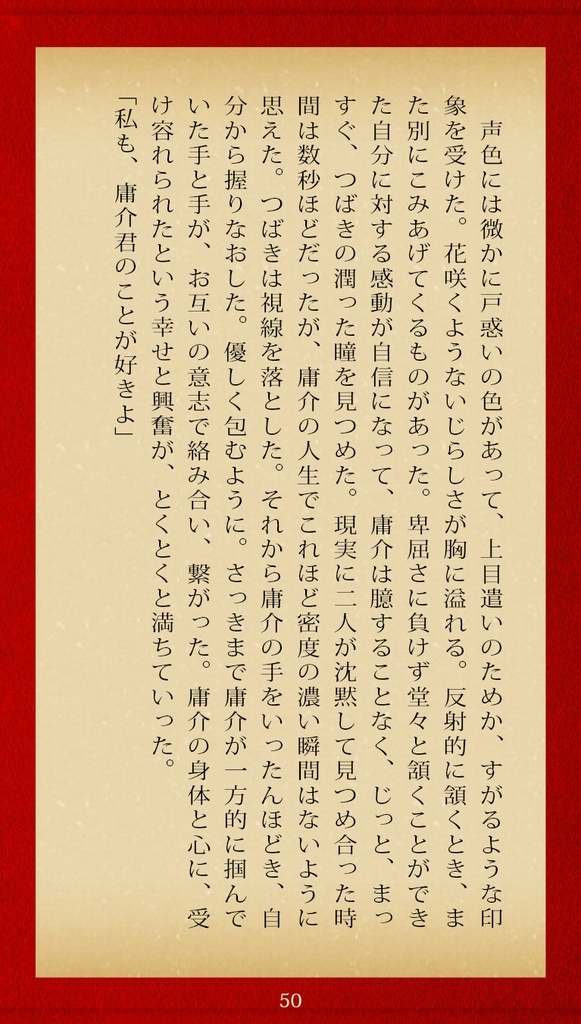 声色には微かに戸惑いの色があって、上目遣いのためか、すがるような印
象を受けた。花咲くようないじらしさが胸に溢れる。反射的に頷くとき、ま
た別にこみあげてくるものがあった。卑屈さに負けず堂々と頷くことができ
た自分に対する感動が自信になって、庸介は臆することなく、じっと、まっ
すぐ、つばきの潤った瞳を見つめた。現実に二人が沈黙して見つめ合った時
間は数秒ほどだったが、庸介の人生でこれほど密度の濃い瞬間はないように
思えた。つばきは視線を落とした。それから庸介の手をいったんほどき、自
分から握りなおした。優しく包むように。さっきまで庸介が一方的に掴んで
いた手と手が、お互いの意志で絡み合い、繋がった。庸介の身体と心に、受
け容れられたという幸せと興奮が、とくとくと満ちていった。
「私も、庸介君のことが好きよ」
50